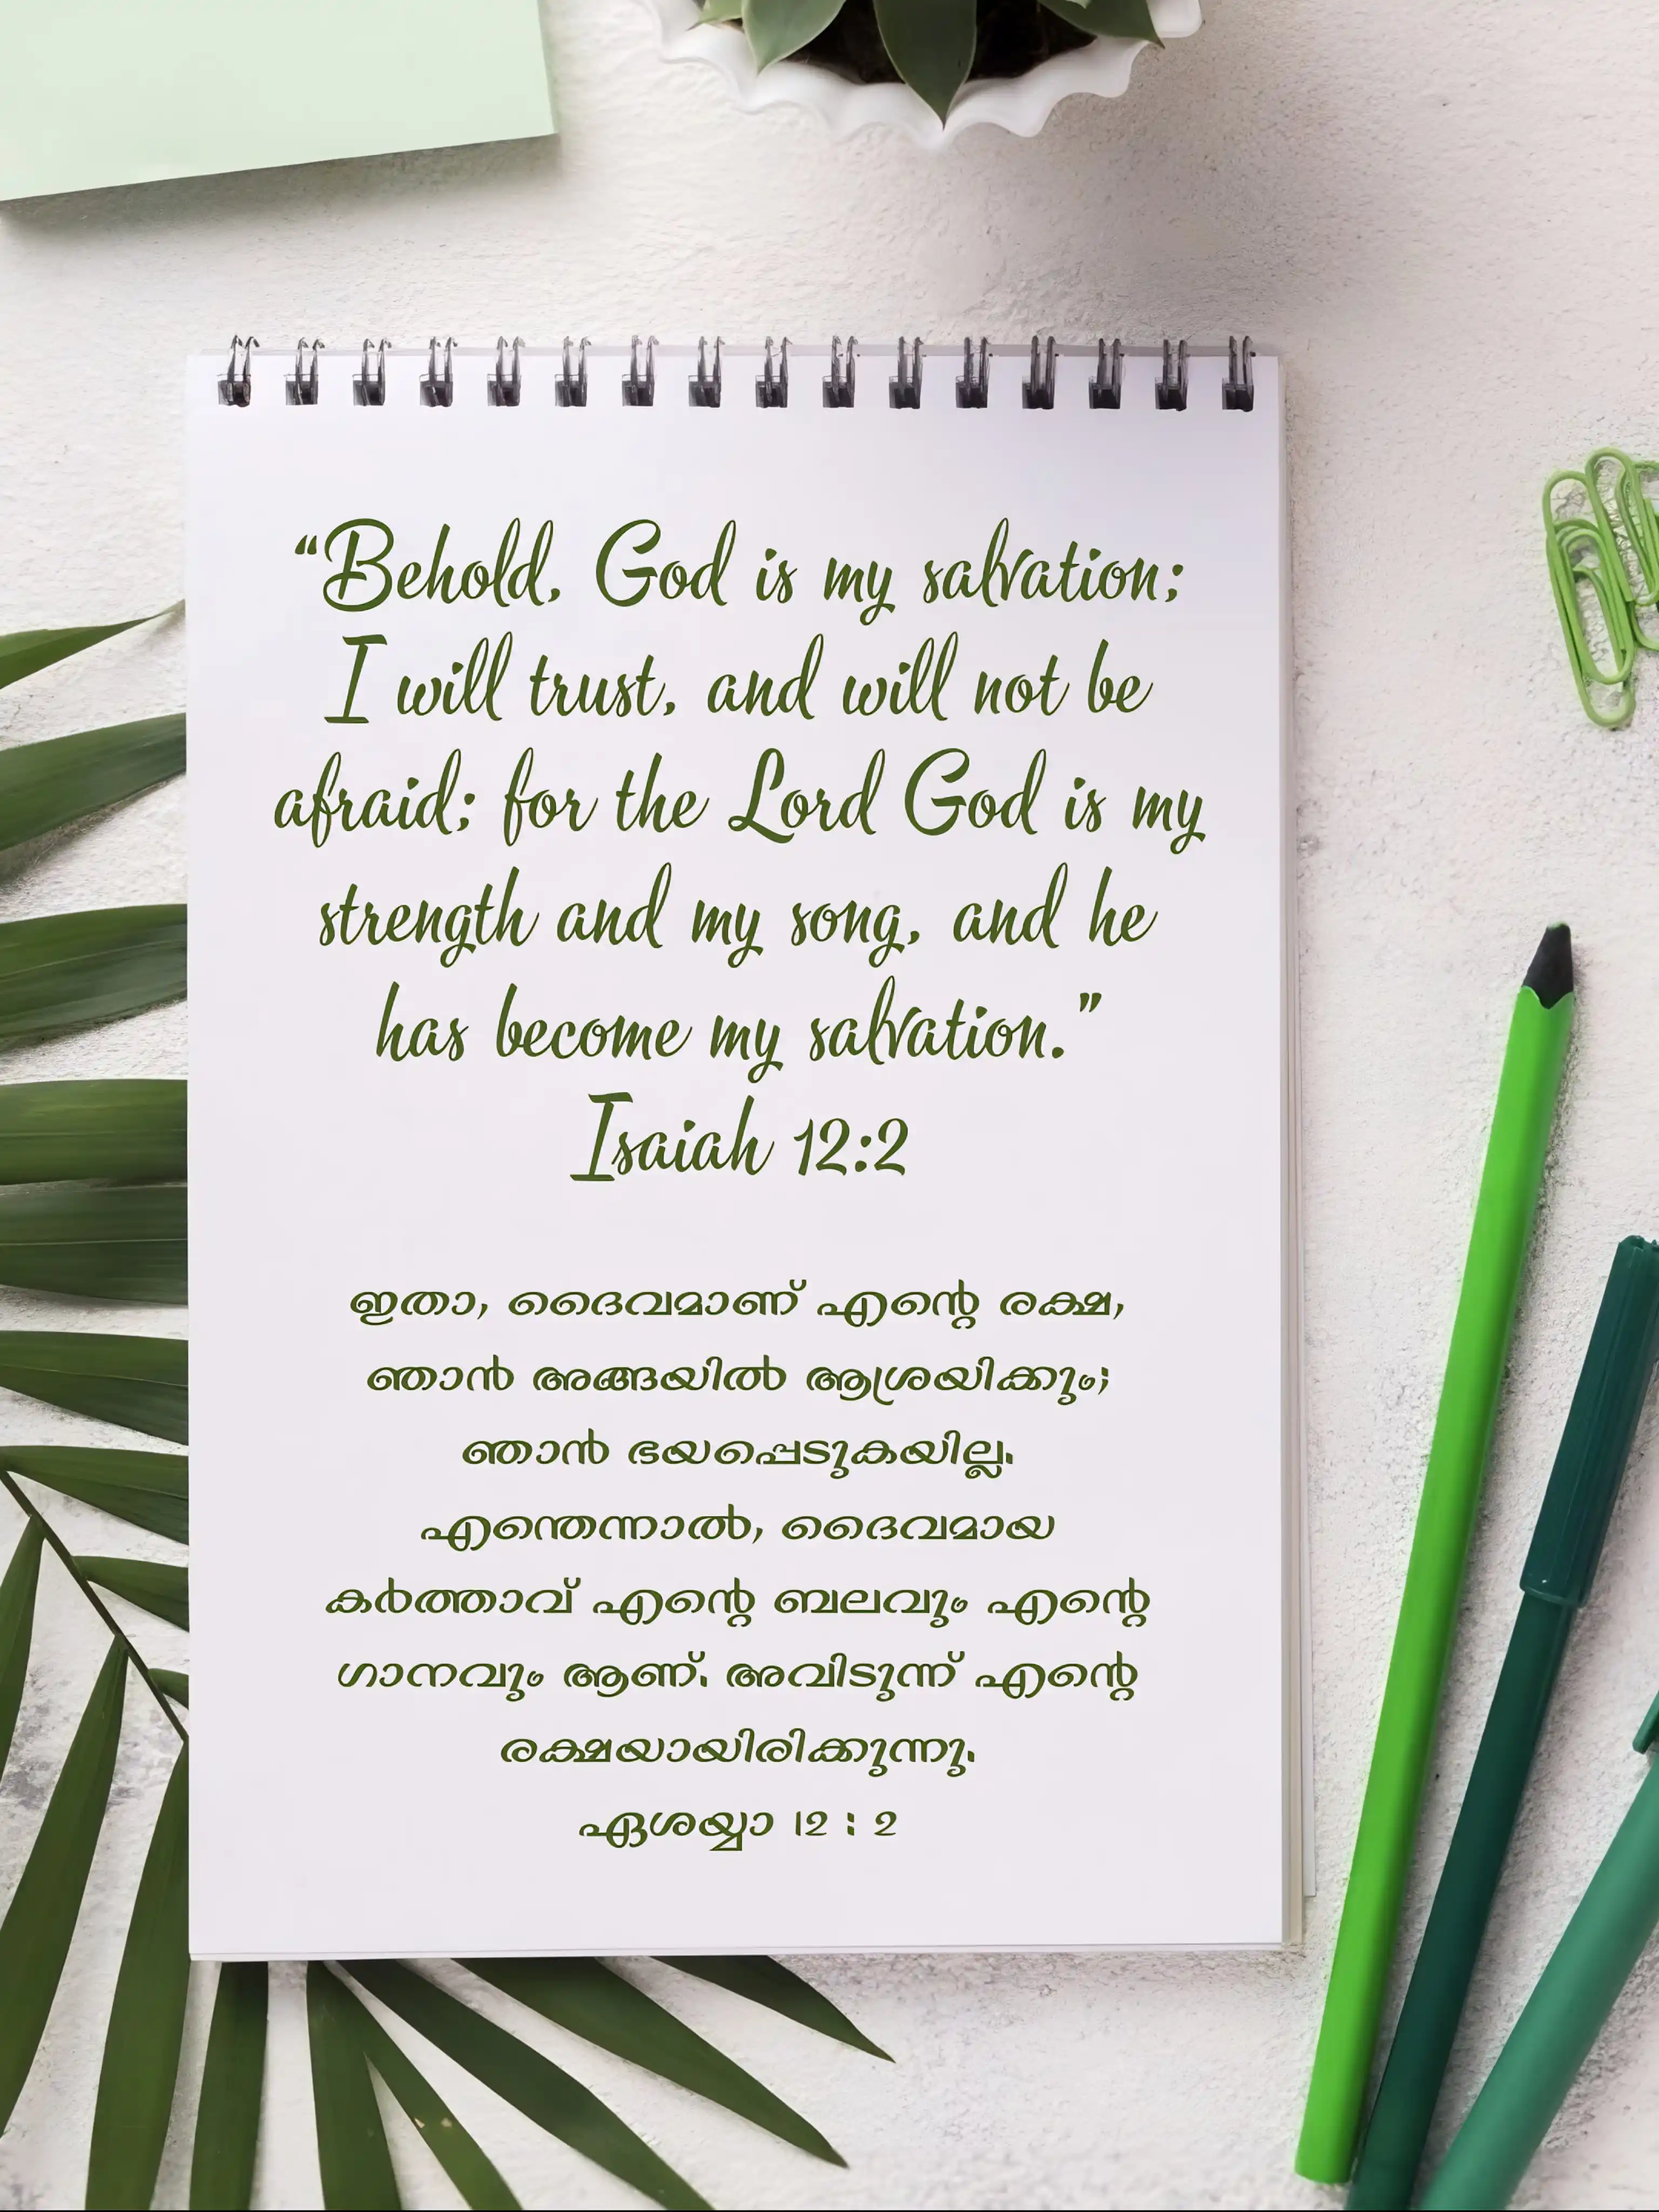 “Behold, God is my salvation;
I will trust, and will not be
afraid; for the Lord God is my
strength and my song, and he
has become my salvation.”
Isaiah 12:2
ഇതാ, ദൈവമാണ് എന്റെ രക്ഷ,
ഞാൻ അങ്ങയിൽ ആശ്രയിക്കും;
ഞാൻ ഭയപ്പെടുകയില്ല.
എന്തെന്നാൽ, ദൈവമായ
കർത്താവ് എന്റെ ബലവും എന്റെ
ഗാനവും ആണ്. അവിടുന്ന് എന്റെ
രക്ഷയായിരിക്കുന്നു.
ഏശയ്യാ 12 : 2